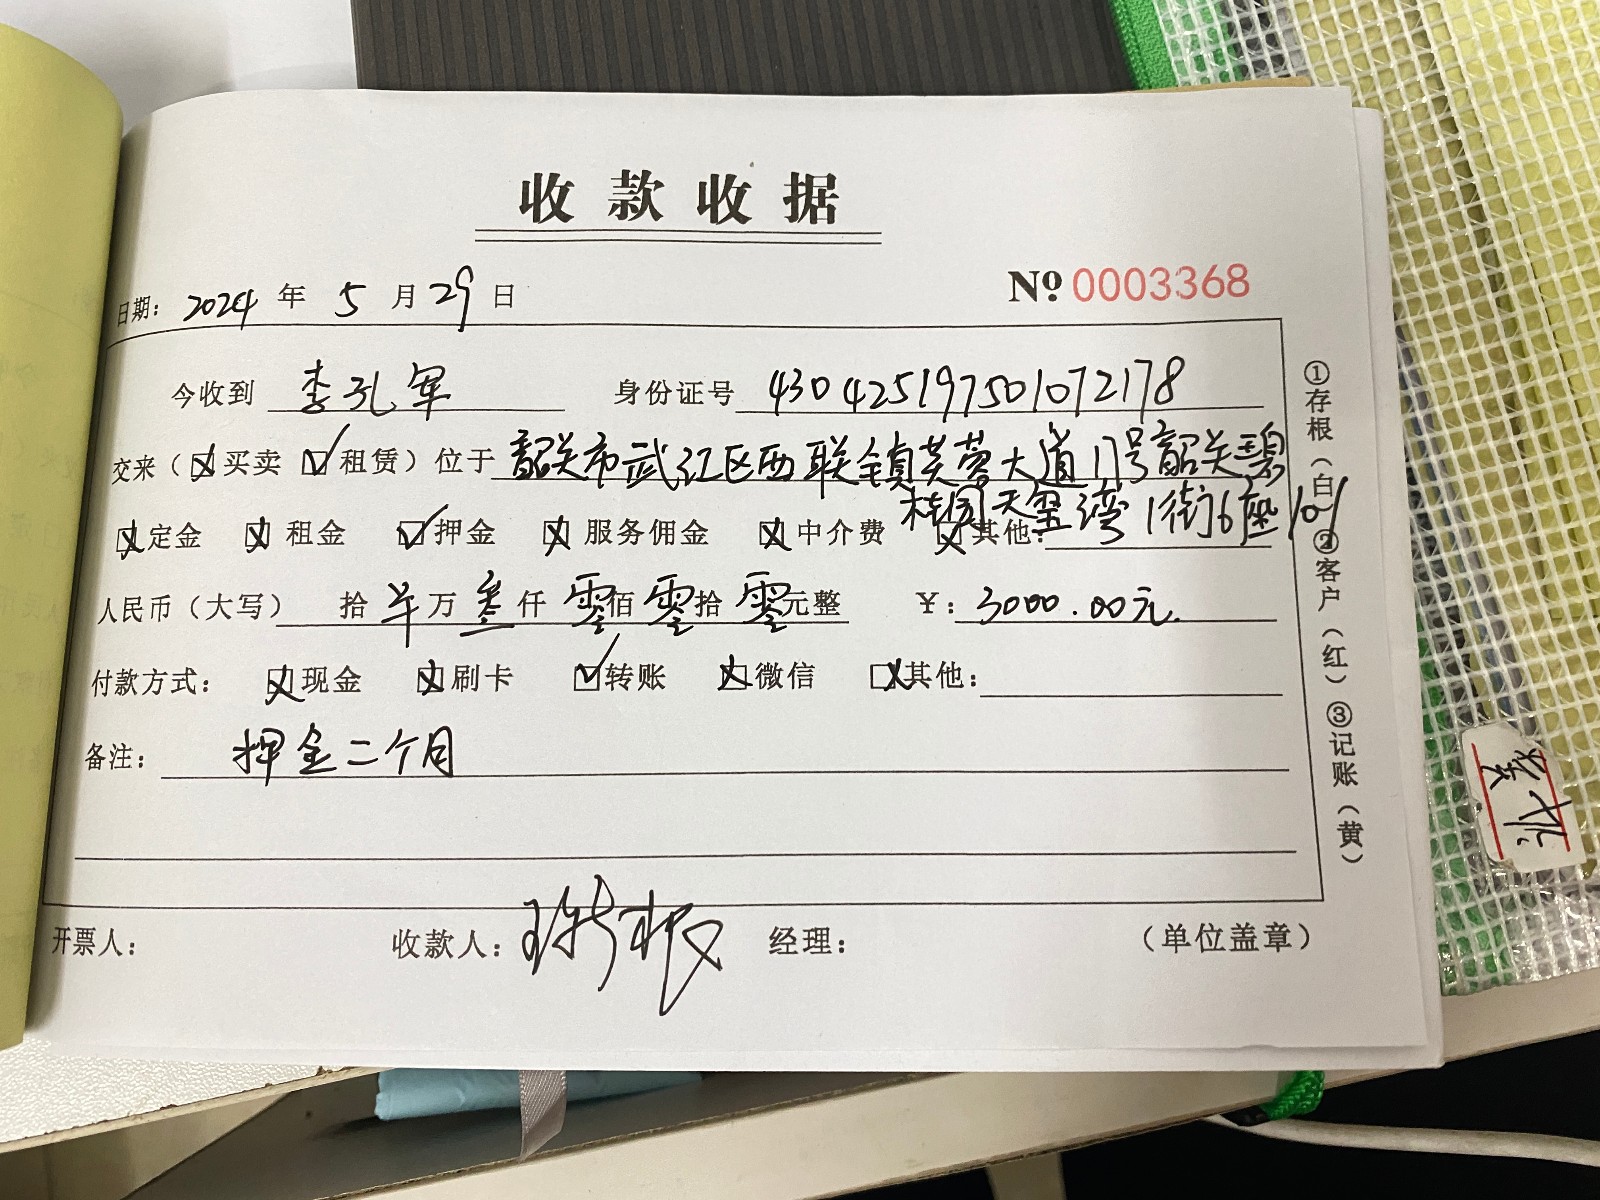 收款收据
日期: 2024 年 5 月 29 日 № 0003368
今收到 李孔军 身份证号 430425197501072178
交来（☒买卖 ☑租赁）位于 韶关市武江区西联镇芙蓉大道17号韶关碧
桂园天玺湾1街6座101
☒定金 ☒租金 ☑押金 ☒服务佣金 ☒中介费 ☒其他:
人民币（大写） 拾 万 叁仟 零佰 零拾 零元整 ￥: 3000.00元.
付款方式: ☒现金 ☒刷卡 ☑转账 ☒微信 ☒其他:
备注: 押金二个月
开票人: 收款人: 经理: （单位盖章）
①存根（白）②客户（红）③记账（黄）